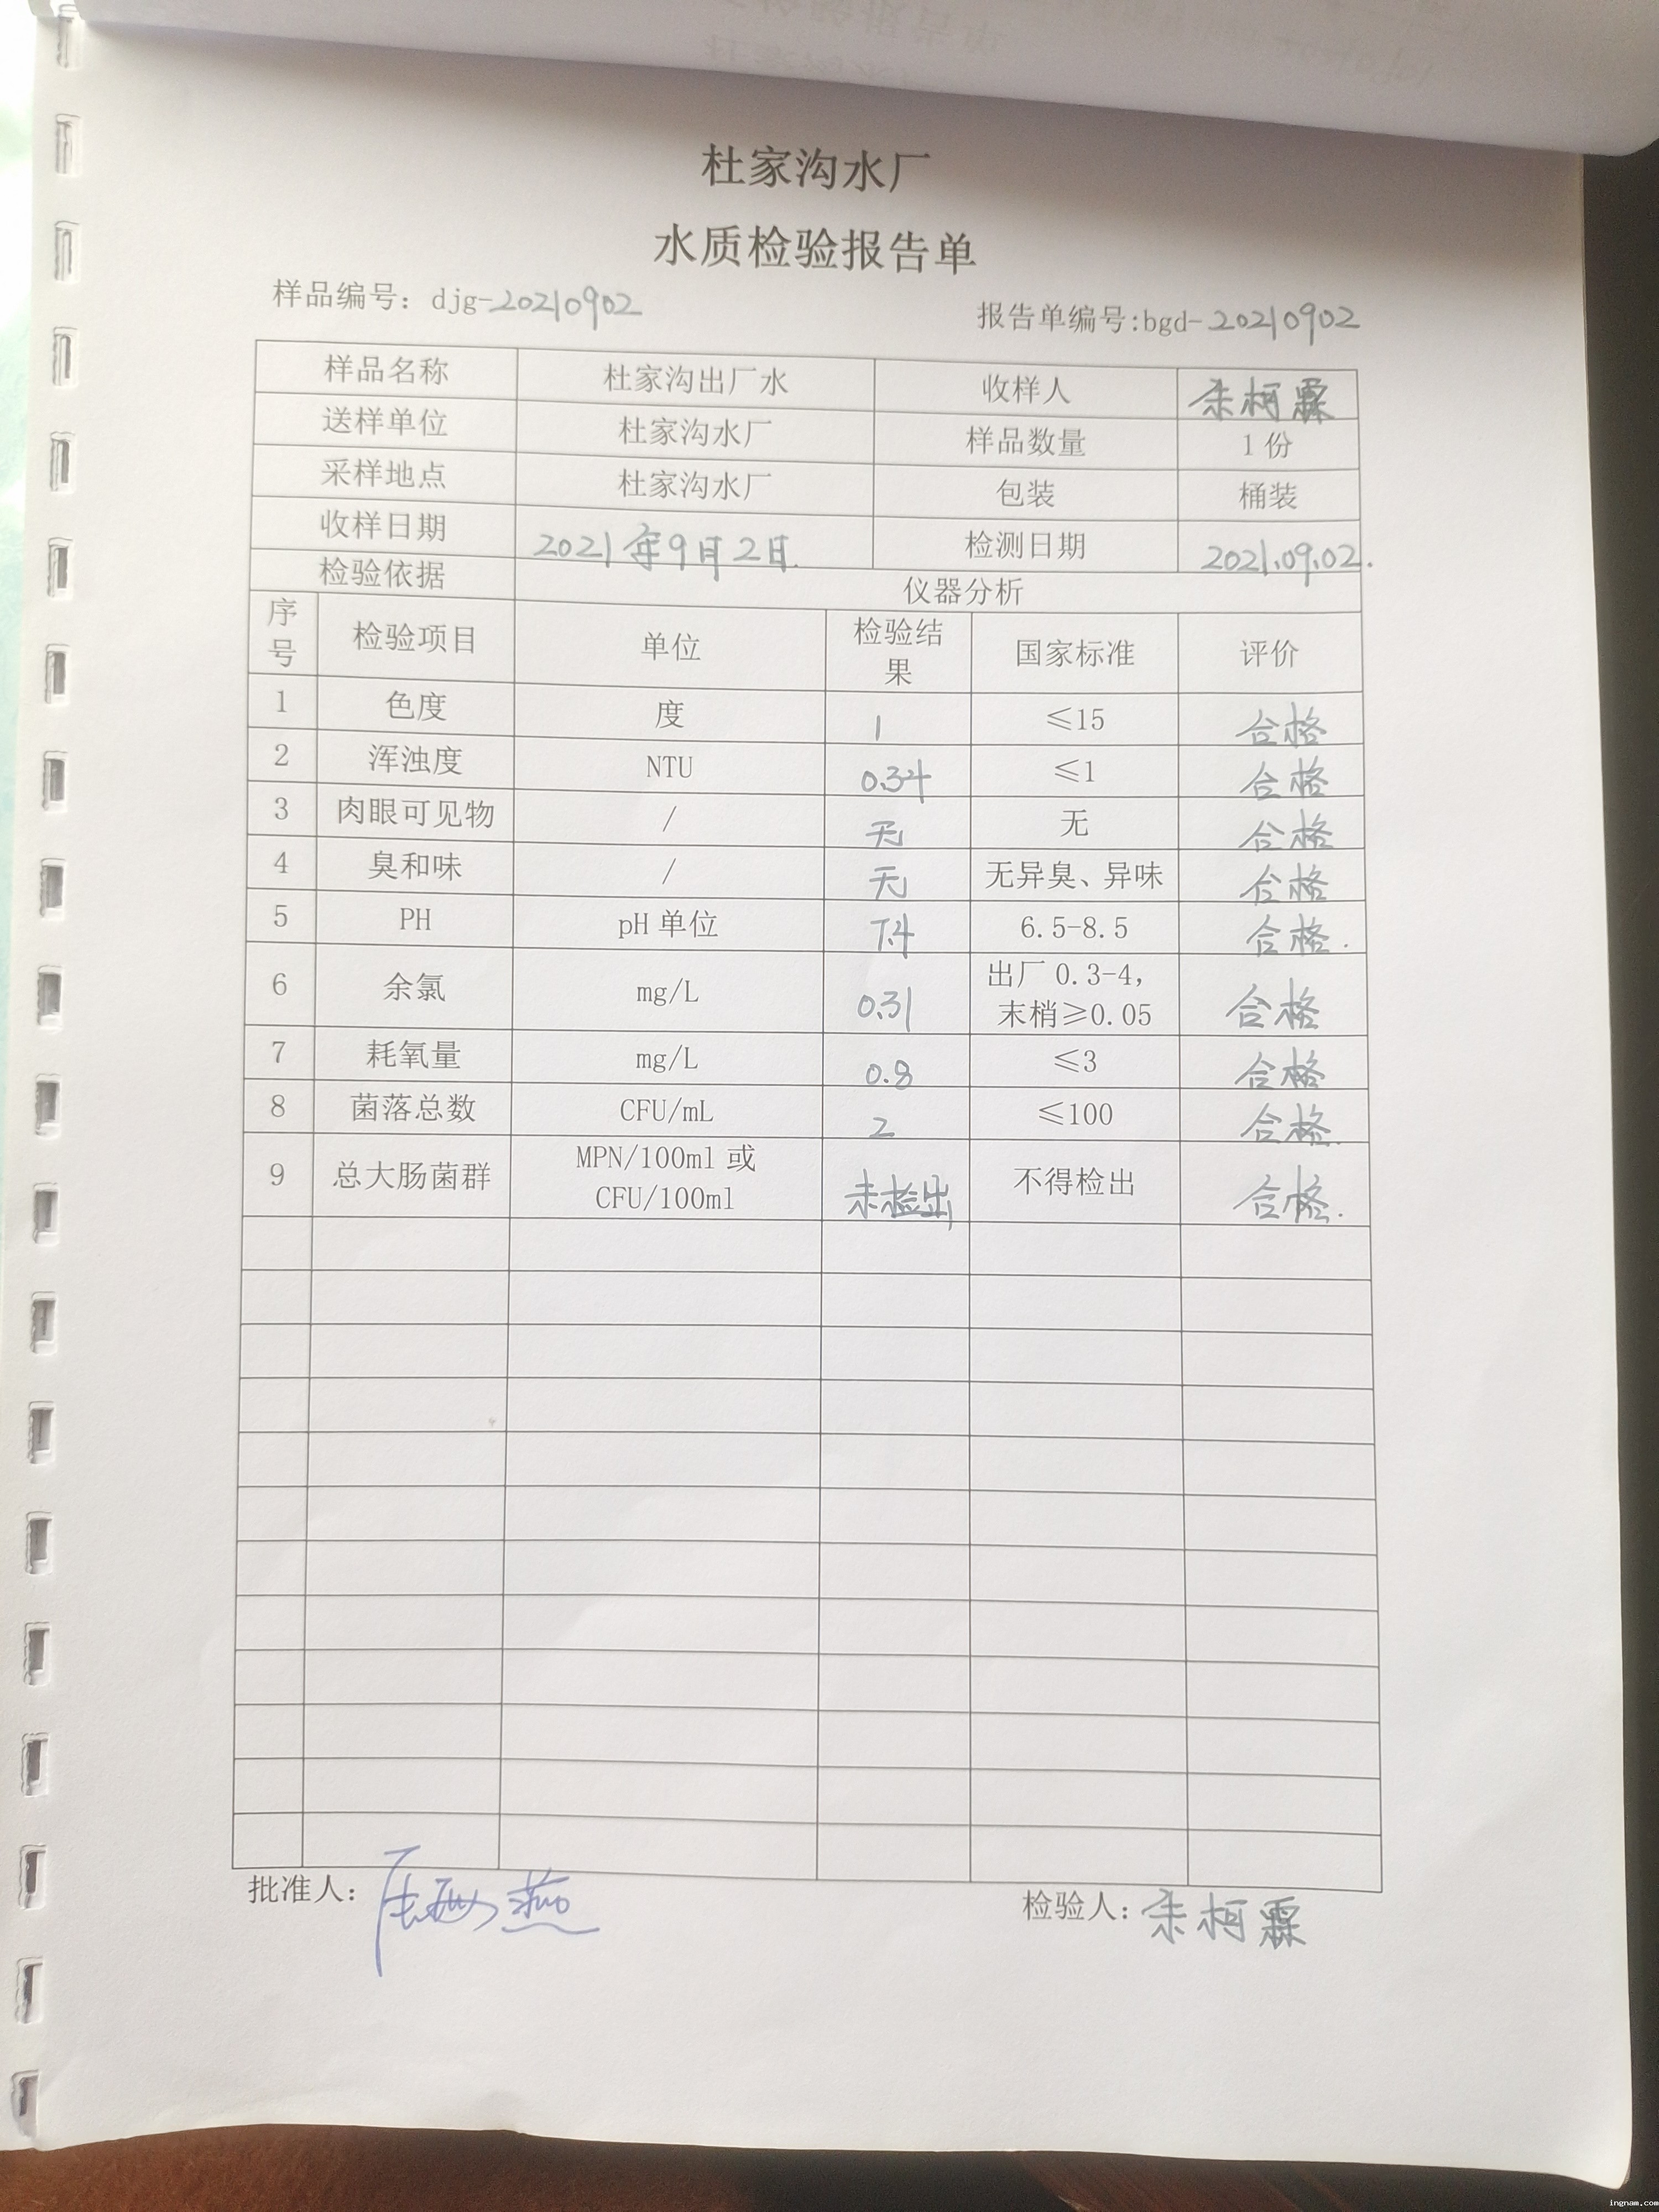 杜家沟水厂
水质检验报告单
样品编号：djg-20210902 报告单编号:bgd-20210902
样品名称 杜家沟出厂水 收样人 柯霖
送样单位 杜家沟水厂 样品数量 1份
采样地点 杜家沟水厂 包装 桶装
收样日期 2021年9月2日. 检测日期 2021.09.02.
检验依据 仪器分析
序号 检验项目 单位 检验结果 国家标准 评价
1 色度 度 1 ≤15 合格
2 浑浊度 NTU 0.34 ≤1 合格
3 肉眼可见物 / 无 无 合格
4 臭和味 / 无 无异臭、异味 合格
5 PH pH单位 7.4 6.5-8.5 合格.
6 余氯 mg/L 0.31 出厂0.3-4，末梢≥0.05 合格
7 耗氧量 mg/L 0.8 ≤3 合格
8 菌落总数 CFU/mL 2 ≤100 合格.
9 总大肠菌群 MPN/100ml或CFU/100ml 未检出 不得检出 合格.
批准人： 燕 检验人： 柯霖
ingnam.com